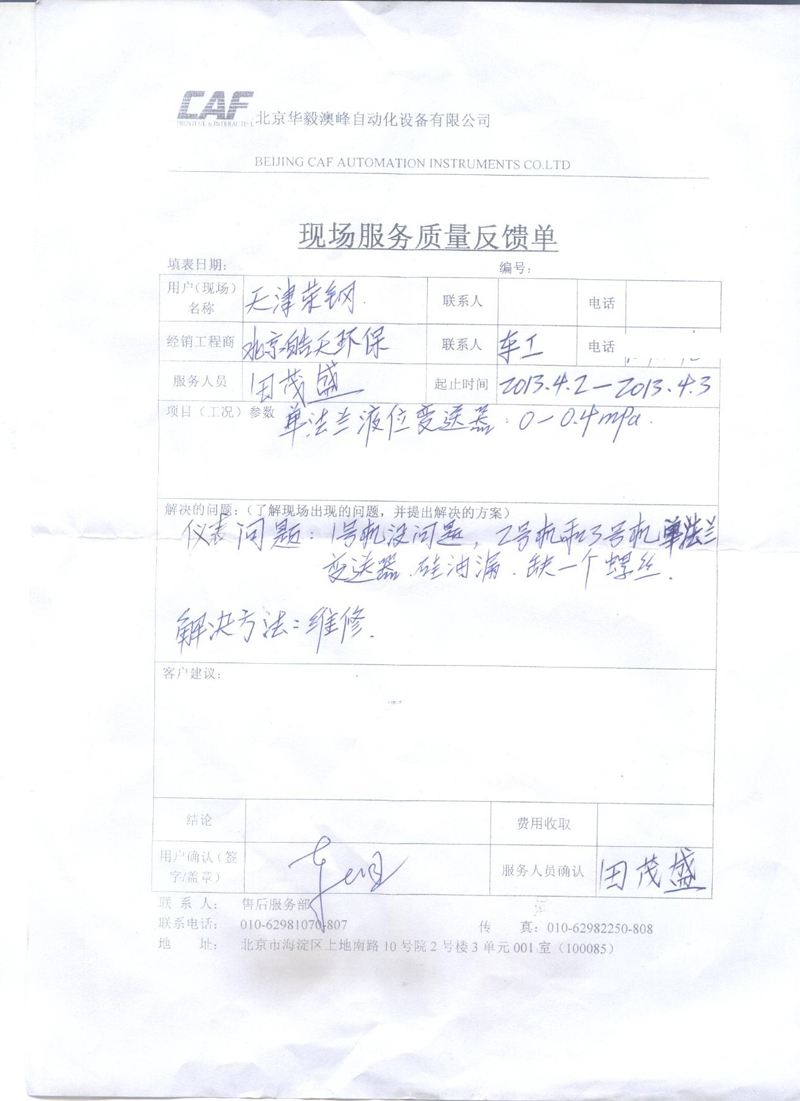 CAF 北京华毅澳峰自动化设备有限公司
BEIJING CAF AUTOMATION INSTRUMENTS CO.LTD
现场服务质量反馈单
填表日期: 编号:
用户(现场)名称 天津荣钢 联系人 电话
经销工程商 北京皓天环保 联系人 车工 电话
服务人员 田茂盛 起止时间 2013.4.2-2013.4.3
项目(工况)参数 单法兰液位变送器: 0-0.4mpa.
解决的问题:(了解现场出现的问题,并提出解决的方案)
仪表问题: 1号机没问题, 2号机和3号机单法兰
变送器.硅油漏.缺一个螺丝.
解决方法:维修.
客户建议:
结论 费用收取
用户确认(签字/盖章) 服务人员确认 田茂盛
联系人: 售后服务部
联系电话: 010-62981070-807 传真: 010-62982250-808
地址: 北京市海淀区上地南路10号院2号楼3单元001室(100085)